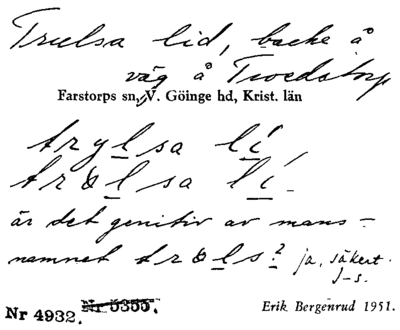 Truelsa lid, backe å
väg å Tvedstorp
Farstorps sn, V. Göinge hd, Krist. län
trylsa lí
trølsa lí
är det genitiv av mans-
namnet trøls? ja, säkert.
J-s.
Nr 4932. Nr 5355.
Erik Bergenrud 1951.